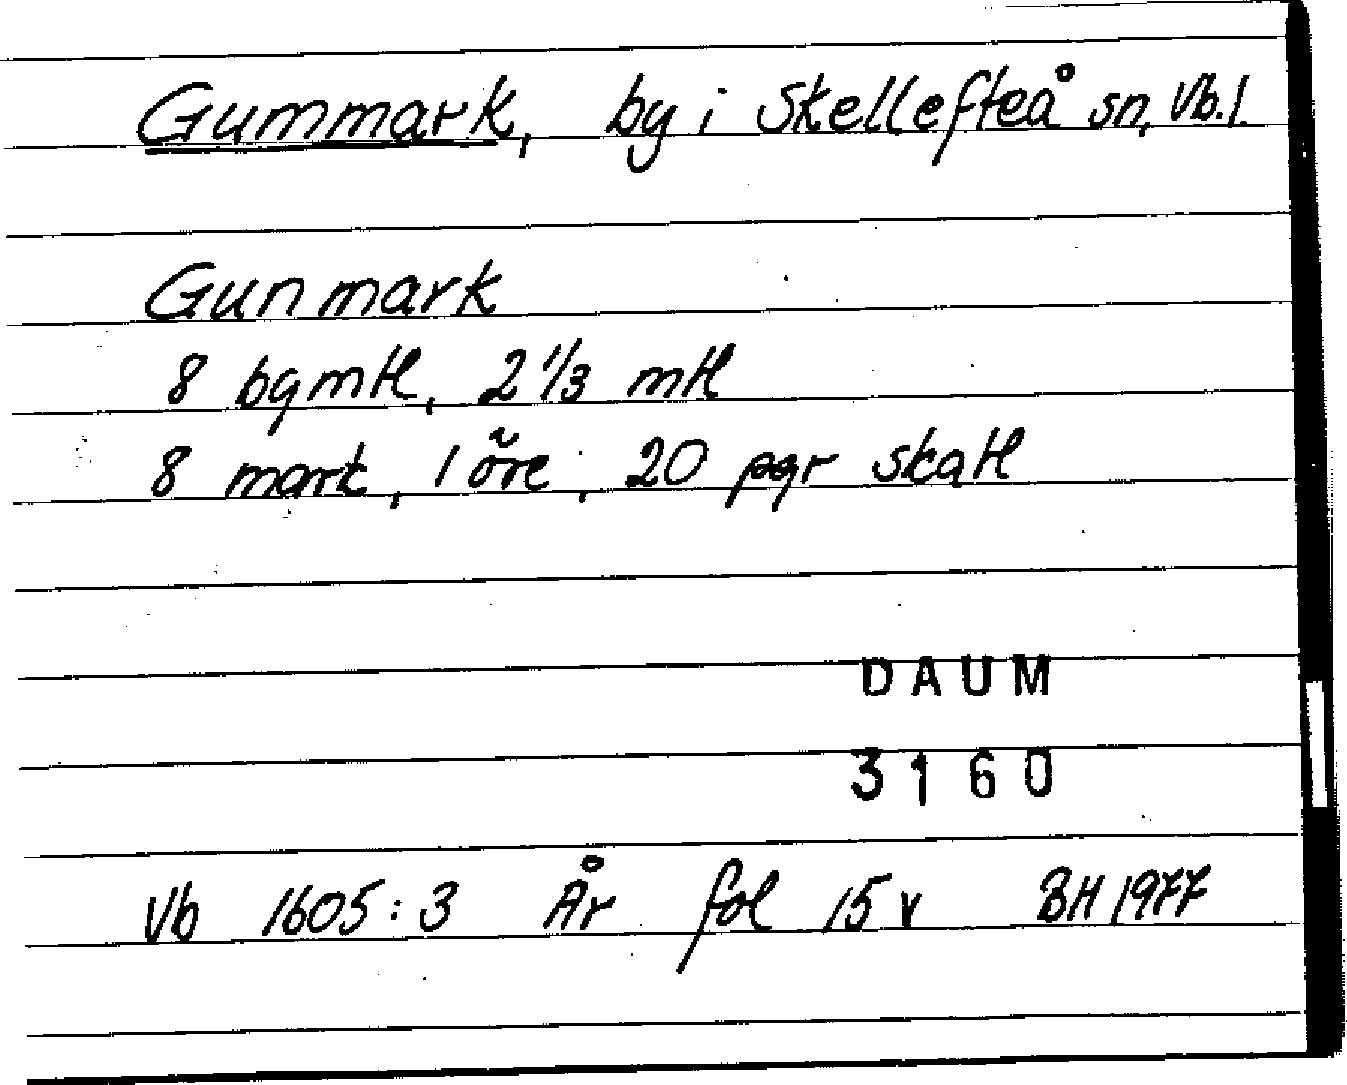 Gummark, by i Skellefteå sn, Vb.l.
Gunmark
8 bgmtl, 2 1/3 mtl
8 mark, 1 öre, 20 pgr skatt
DAUM
3160
Vb 1605:3 År fol 15 v BH 1977